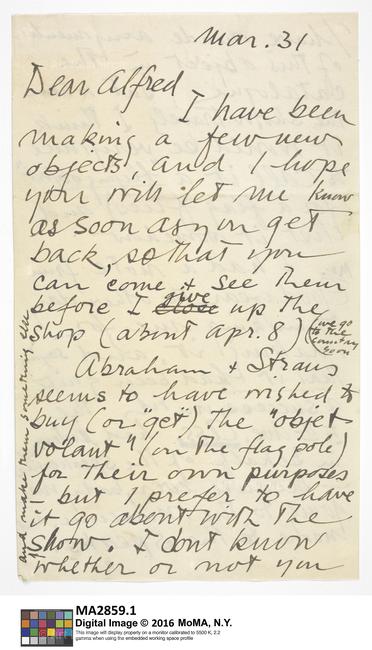 Mar. 31
Dear Alfred
I have been
making a few new
objects, and I hope
you will let me know
as soon as you get
back, so that you
can come & see them
before I close give up the
shop (about Apr. 8) (we go
to the
country
soon)
Abraham & Straus
seems to have wished to
buy (or "get") the "objet
volant" (on the flagpole)
for their own purposes
– but I prefer to have
it go about with the
show. I dont know
whether or not you
and make them something else
MA2859.1
Digital Image © 2016 MoMA, N.Y.
This image will display properly on a monitor calibrated to 5500 K, 2.2
gamma when using the embedded working space profile